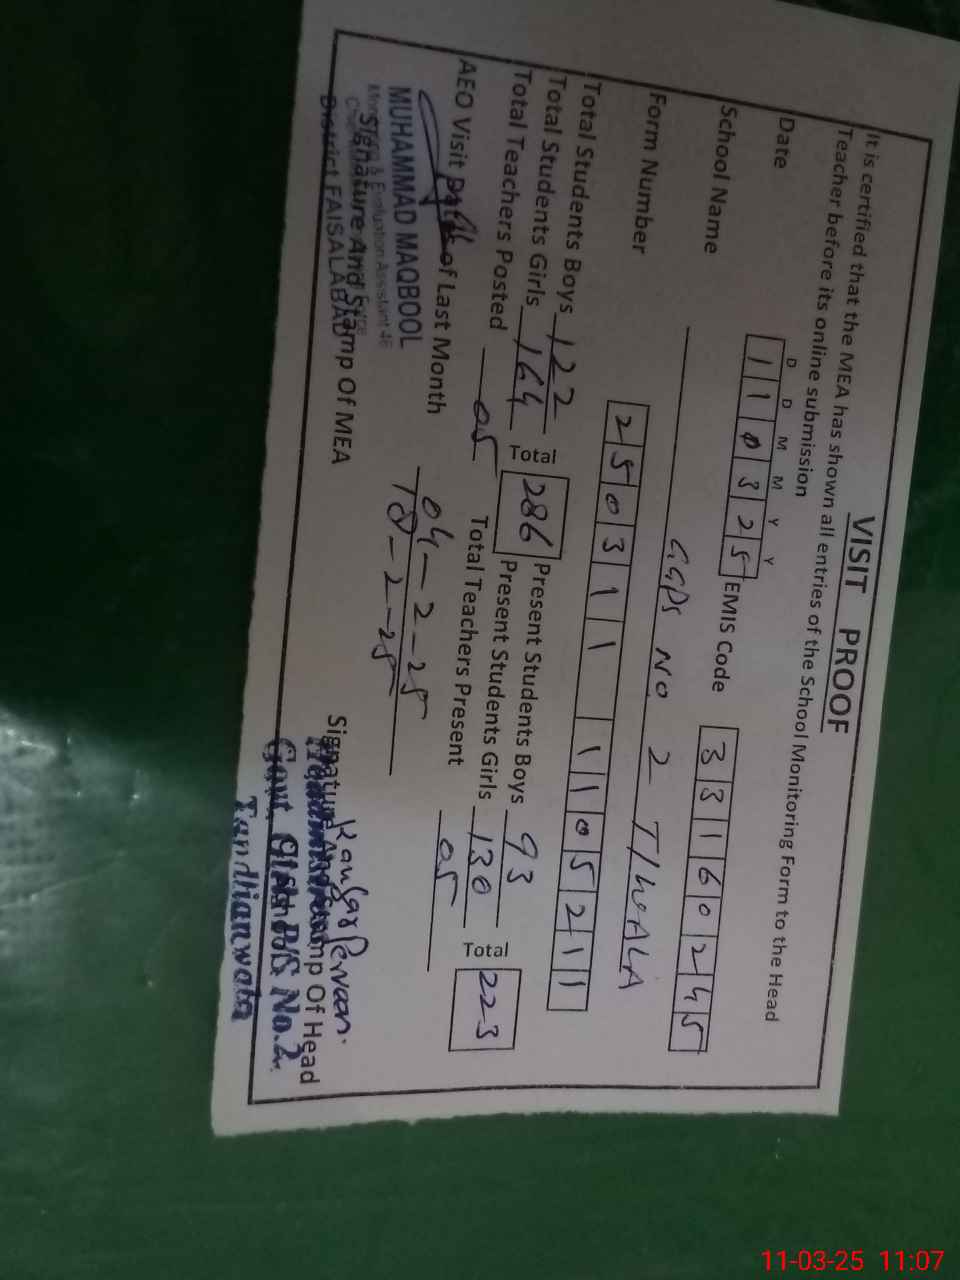 VISIT PROOF
It is certified that the MEA has shown all entries of the School Monitoring Form to the Head
Teacher before its online submission
D D M M Y Y
Date 1 1 0 3 2 5 EMIS Code 3 3 1 6 0 2 4 5
School Name GGPS NO 2 T/WALA
Form Number 2 5 0 3 1 1 1 1 0 5 2 1 1
Total Students Boys 122 Total 286 Present Students Boys 93 Total 223
Total Students Girls 164 Present Students Girls 130
Total Teachers Posted 05 Total Teachers Present 05
AEO Visit Dates of Last Month 04-2-25
18-2-25
MUHAMMAD MAQBOOL
Monitoring & Evaluation Assistant 46
Signature And Stamp Of MEA
District FAISALABAD
Kausar Perveen
Signature And Stamp Of Head
Govt. Girls P/S No.2
Tandlianwala
11-03-25 11:07